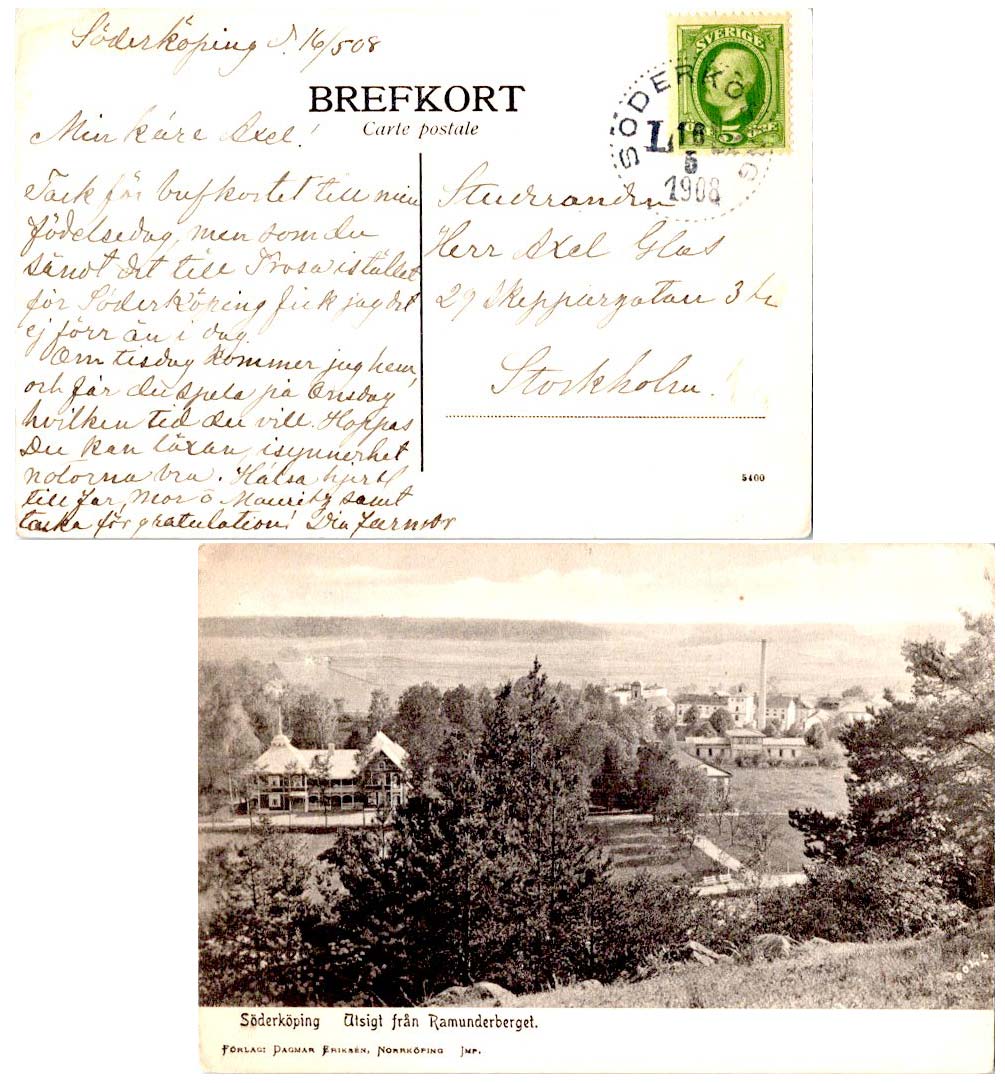 Söderköping d. 16/5 08
BREFKORT
Carte postale
SVERIGE
5
ÖRE
SÖDERKÖPING
16
5
1908
Min käre Axel!
Tack för brefkortet till min
födelsedag, men som du
sändt det till Trosa istället
för Söderköping fick jag det
ej förr än i dag.
Om tisdag kommer jag hem,
och får du spela på Onsdag
hvilken tid du vill. Hoppas
Du kan läxan, isynnerhet
noterna bra. Hälsa hjertl
till far, mor o Mauritz samt
tacka för gratulation! Din farmor
Studeranden
Herr Axel Glas
29 Skeppargatan 3 tr
Stockholm.
5400
Söderköping Utsigt från Ramunderberget.
Förlag: Dagmar Eriksén, Norrköping Imp.